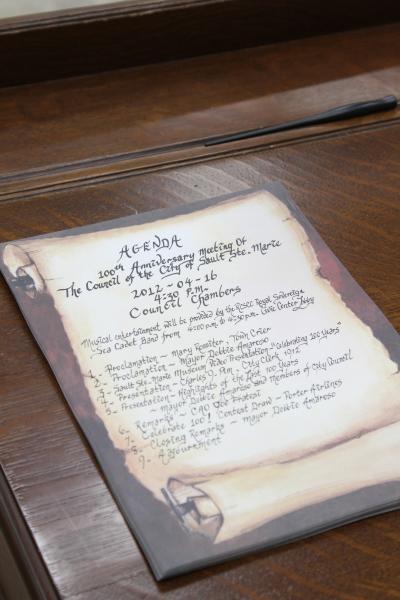 AGENDA
100th Anniversary Meeting Of
The Council of the City of Sault Ste. Marie
2012-04-16
4:30 P.M.
Council Chambers
Musical entertainment will be provided by the Royal Sovereign
Sea Cadet Band from 4:00 p.m. to 4:30 p.m. Civic Center Lobby
1.~ Proclamation ~ Mary Rossiter, Town Crier
2.~ Proclamation ~ Mayor Debbie Amaroso
3.~ Sault Ste. Marie Museum Video Presentation "Celebrating 100 Years"
4.~ Presentation ~ Charles J. City Clerk 1912
5.~ Presentation ~ Highlights of the Past 100 Years
~ Mayor Debbie Amaroso and Members of City Council
6.~ Remarks ~ CAO Joe Fratesi
7.~ Celebrate 100! Contest Draw ~ Porter Airlines
8.~ Closing Remarks ~ Mayor Debbie Amaroso
9.~ Adjournment